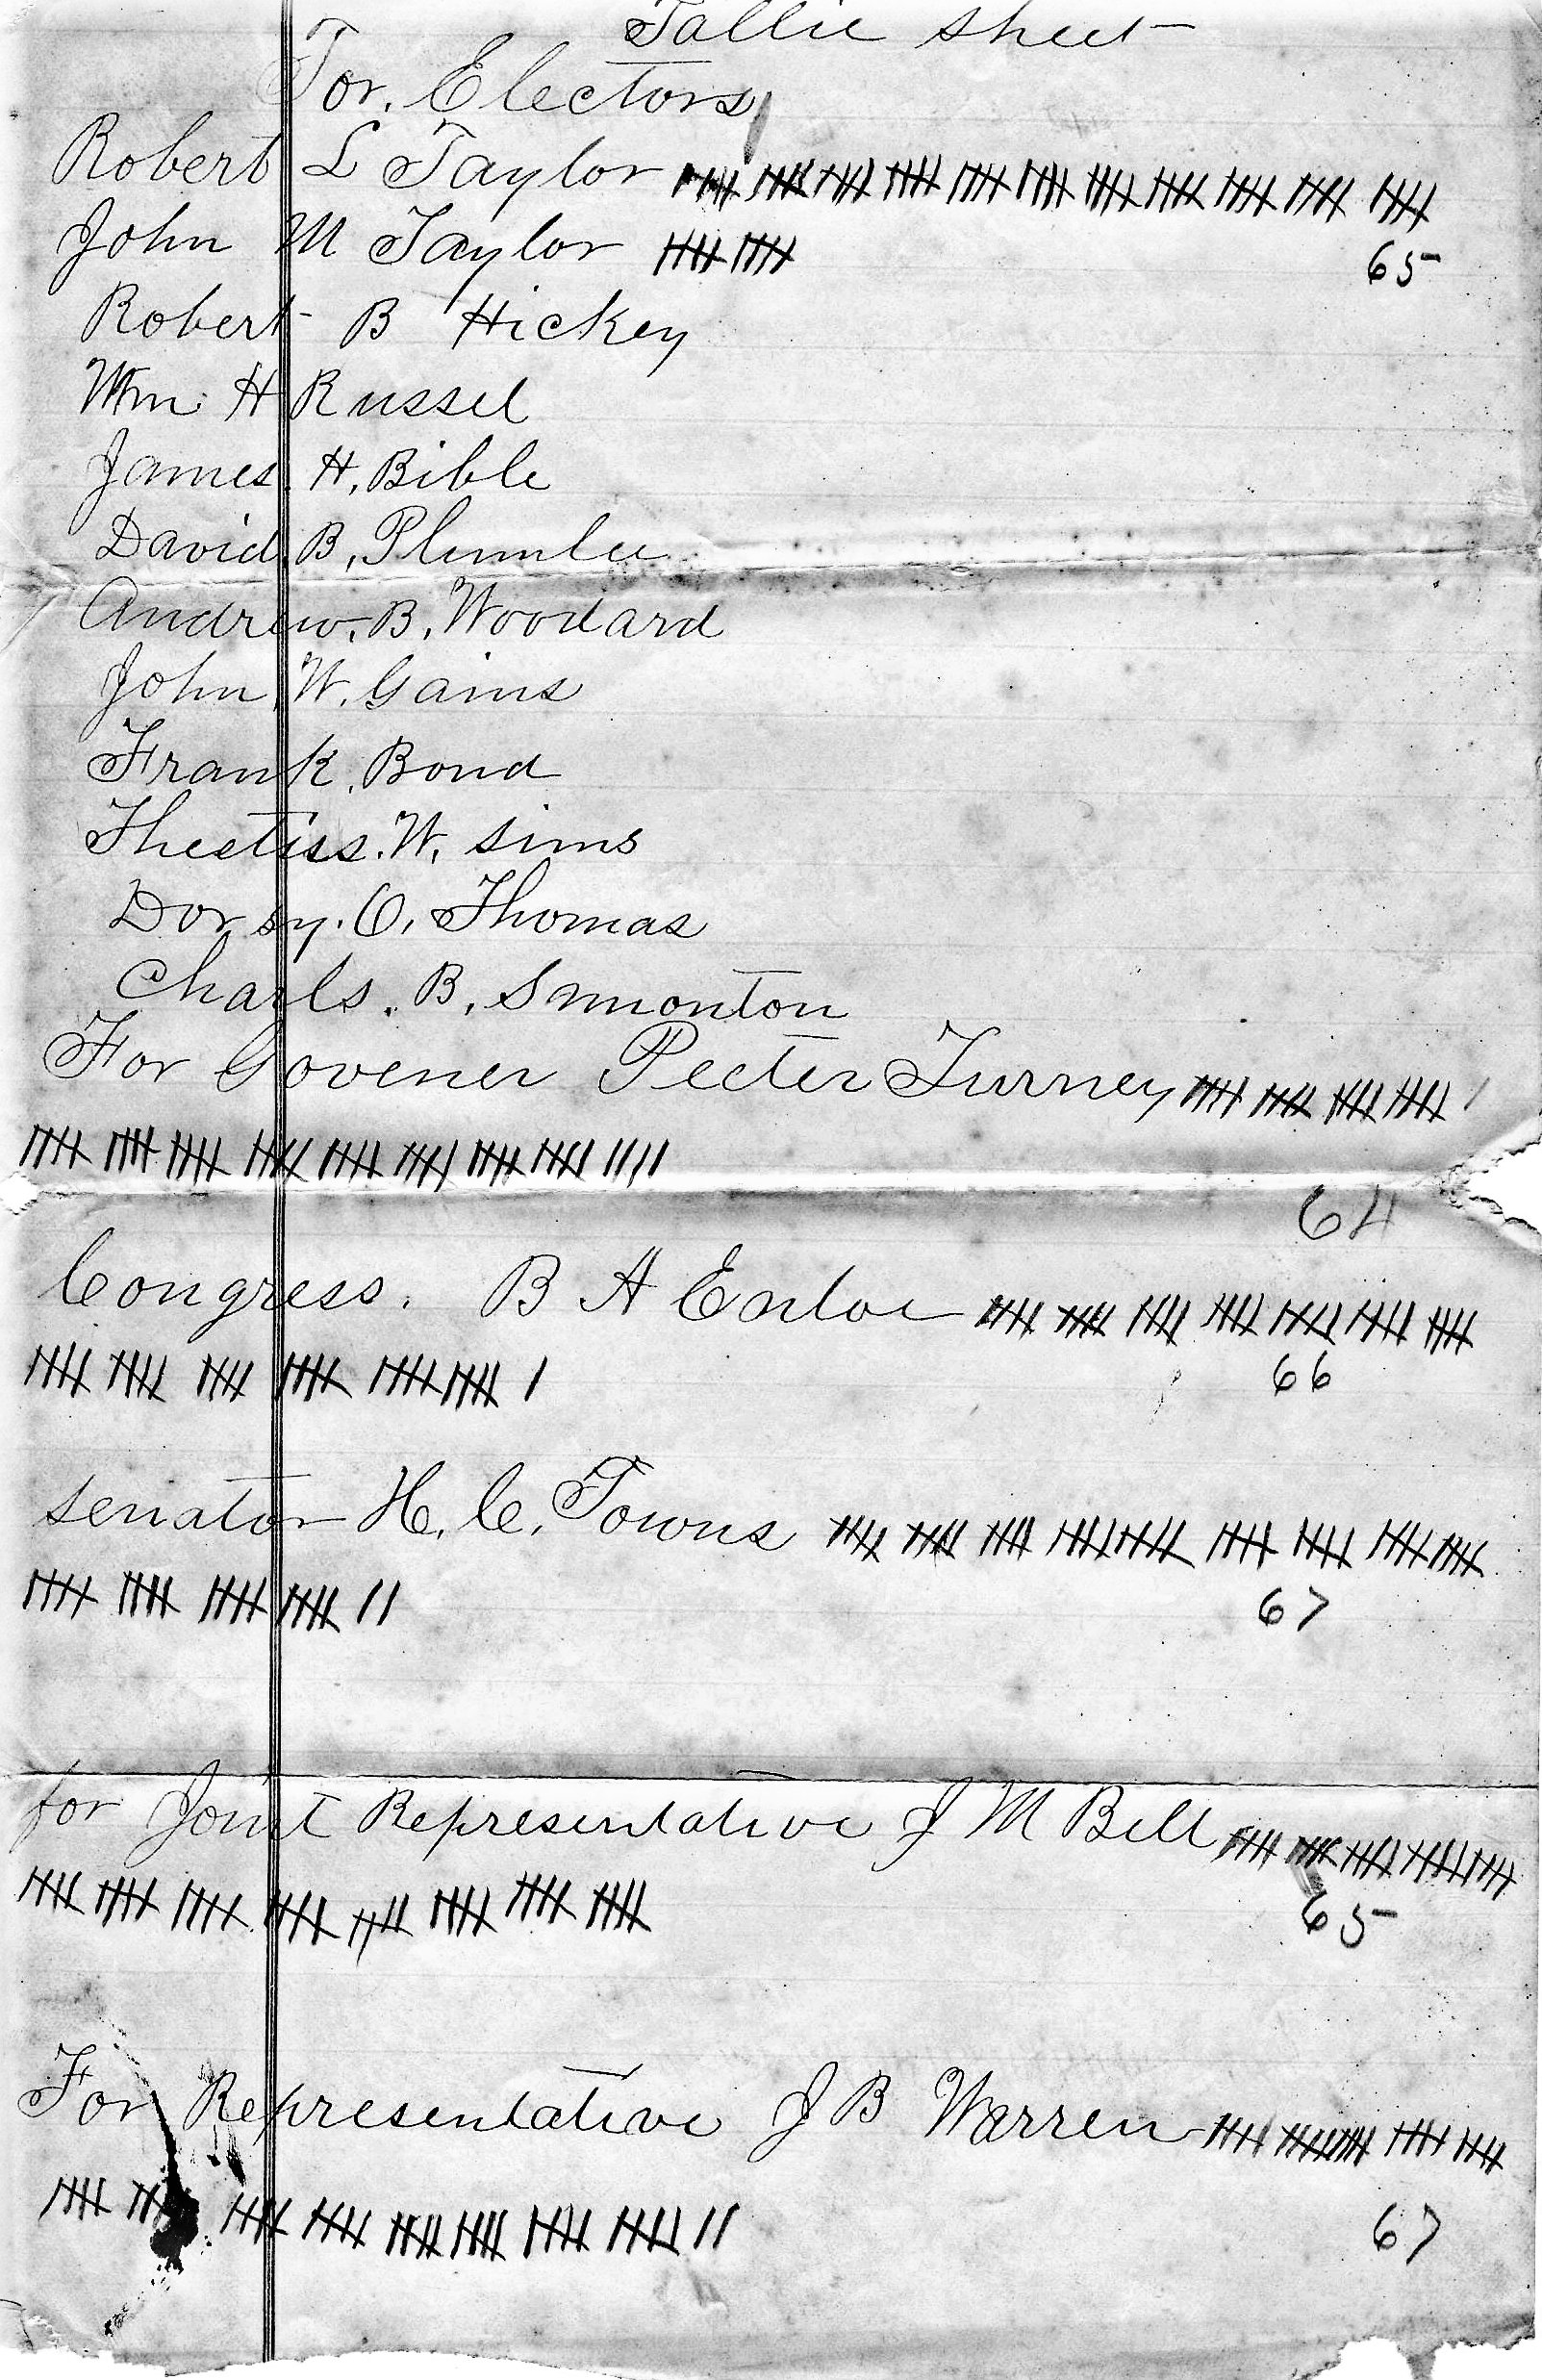 Tallie sheet
For. Electors
Robert L Taylor
John M Taylor 65
Robert B Hickey
Wm H Russel
James. H. Bible
David. B. Plumlee
Andrew. B. Woodard
John W. Gains
Frank. Bond
Theetiss. W. Sims
Dorsy. O. Thomas
Charls. B. Simonton
For Govener Peeter Turney
64
Congress. B A Enloe
66
Senator H. C. Towns
67
for Joint Representative J M Bell
65
For Representative J B Warren
67